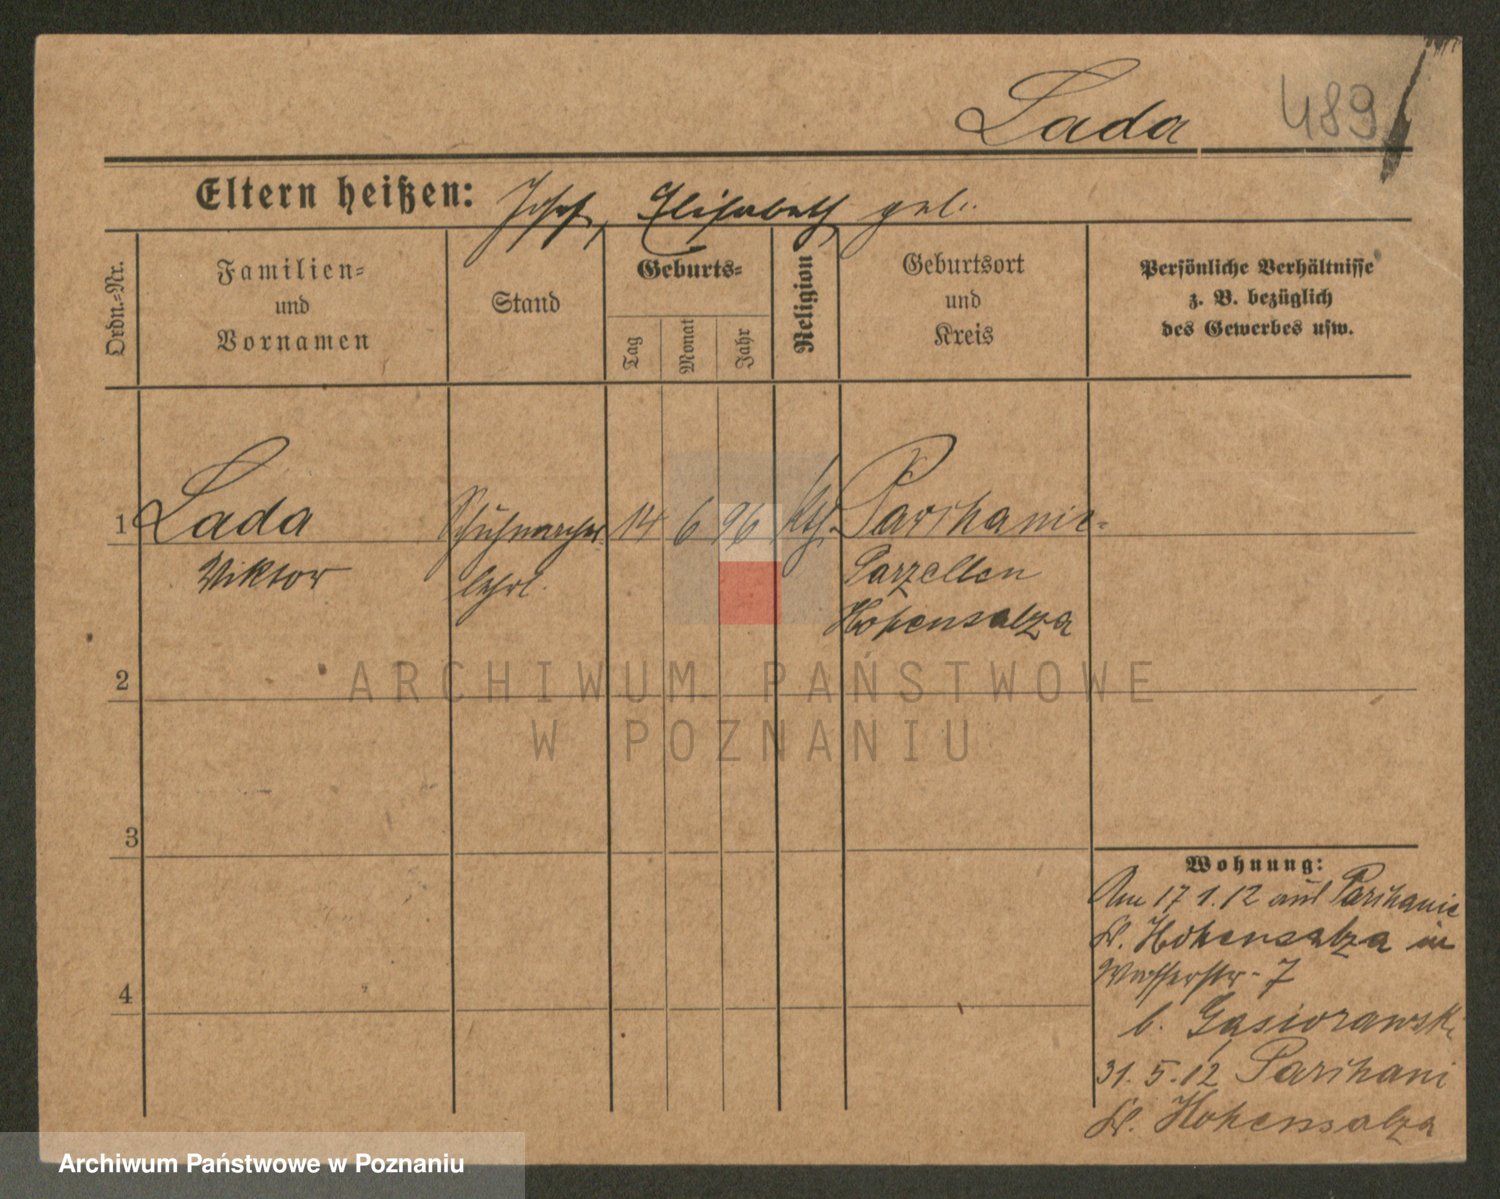 Lada 489
Eltern heißen: Josef, Elisabeth geb.
Ordn.-Nr.
Familien-
und
Vornamen
Stand
Geburts-
Tag
Monat
Jahr
Religion
Geburtsort
und
Kreis
Persönliche Verhältnisse
z. B. bezüglich
des Gewerbes usw.
1 Lada Schuhmacher 14 6 96 kth. Parchanie-
Viktor lehrl. Parzellen
Hohensalza
2
ARCHIWUM PAŃSTWOWE
W POZNANIU
3
Wohnung:
Am 17 1.12 aus Parchanie
Kr. Hohensalza in
Wasserstr. 7
4
b. Gąsiorawski
31. 5. 12 Parchani
Kr. Hohensalza
Archiwum Państwowe w Poznaniu